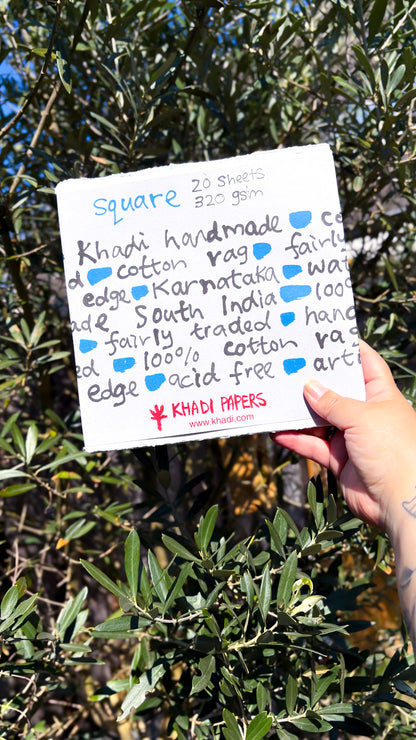 square 20 sheets
320 gsm
Khadi handmade
d cotton rag fairly
edge Karnataka
ade South India 100
fairly traded hand
ed 100% cotton rag
edge acid free
KHADI PAPERS
www.khadi.com